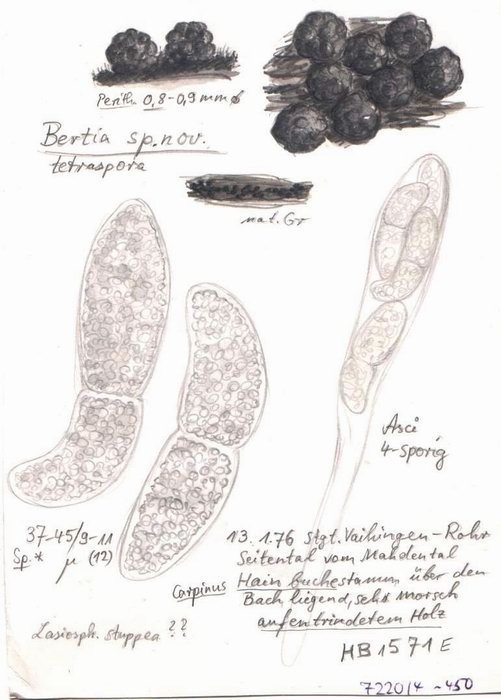 Perith. 0,8-0,9 mm ø
Bertia sp. nov.
tetraspora
nat. Gr
Asci
4-sporig
37-45/9-11
Sp.* µ (12)
13. 1.76 Stgt. Vaihingen-Rohr
Seitental vom Mahdental
Carpinus Hainbuchestamm über den
Bach liegend, sehr morsch
auf entrindetem Holz
Lasiosph. stuppea ??
HB 1571 E
7220/4 -450